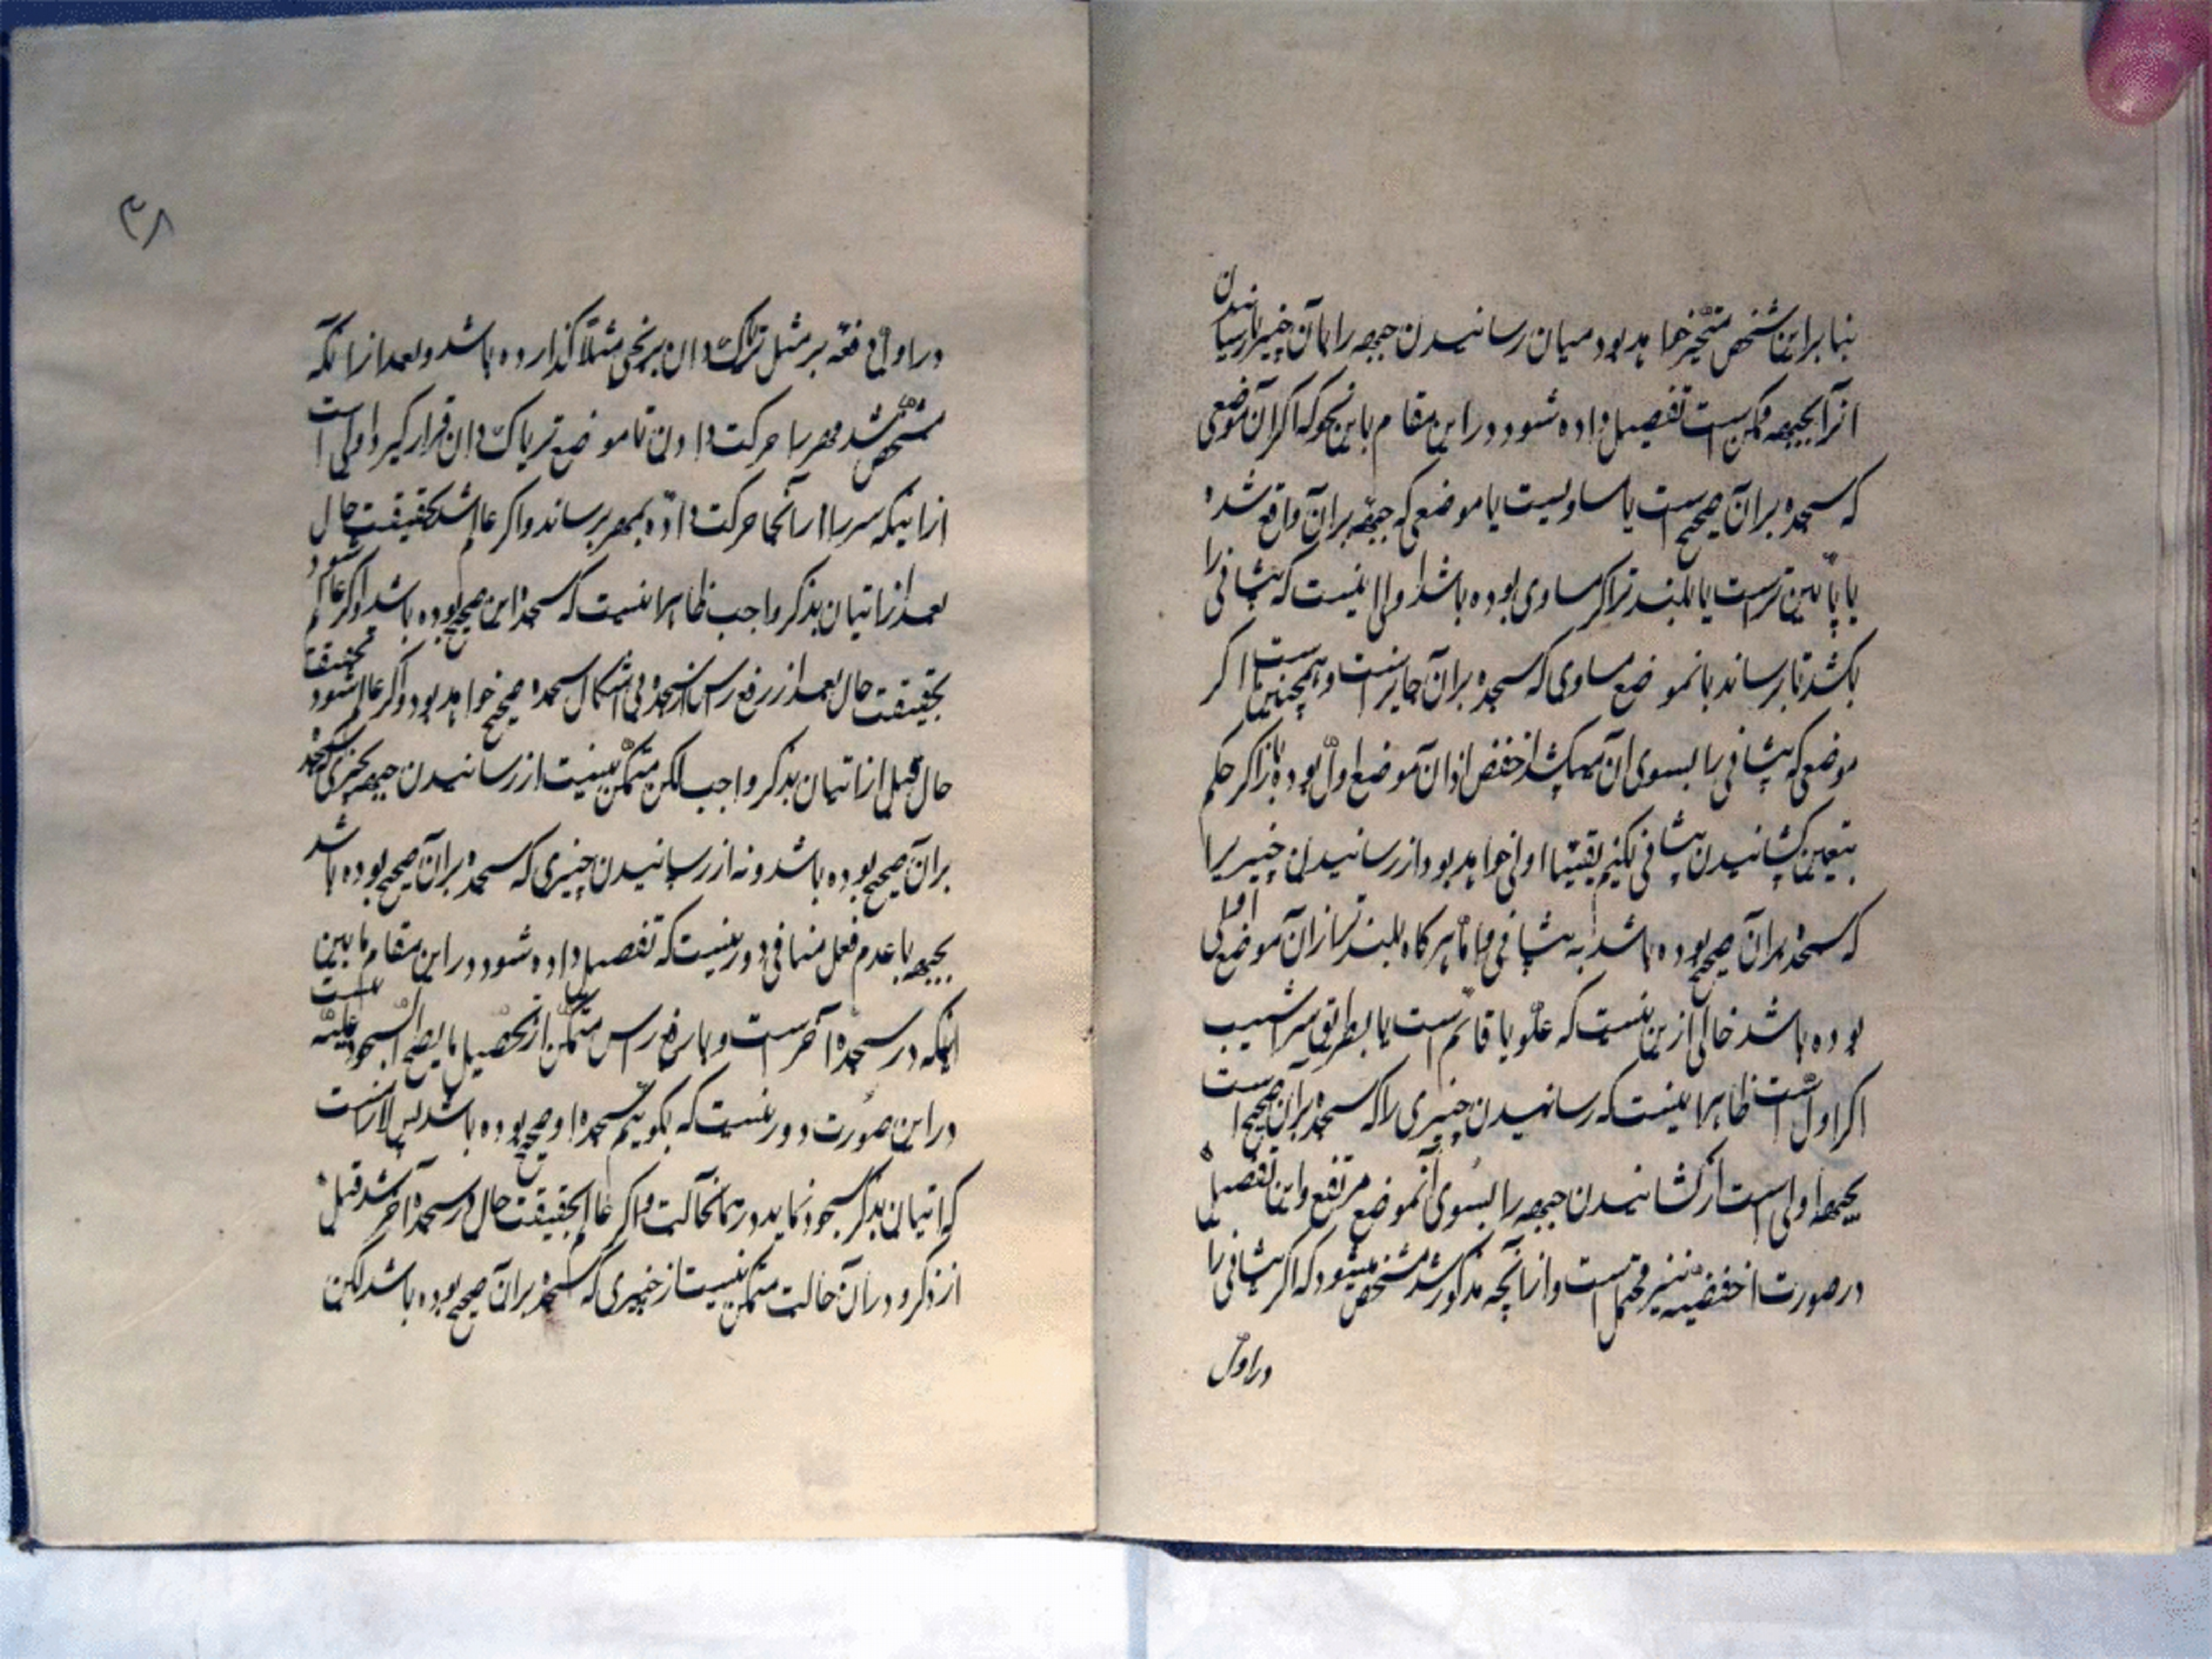 بنا براین شخص متخیر خواهد بود میان رسانیدن جبهه را بآن چیز یا رسانیدن
انرا بجبهه ممکن است تفصیل داده شود در این مقام باین نحو که اکر آن موضعی
که سجده بر آن صحیح است یا مساویست با موضعی که جبهه بر آن واقع شده
یا پائین تر است یا بلند تر اکر مساوی بوده باشد اولی اینست که پیشانی را
بکشد تا برساند بانموضع مساوی که سجده بر آن جایز است و همچنین است اکر
موضعی که پیشانی را بسوی ان میکشد اخفض از ان موضع اول بوده باز اکر حکم
بتعین کشانیدن پیشانی نکنیم یقینا اولی خواهد بود از رسانیدن چیزیرا
که سجده بر آن صحیح بوده باشد به پیشانی و اما هرکاه بلند تر از ان موضع اولی
بوده باشد خالی ازین نیست که علو یا قائم است یا بطریق سراشیب
اکر اول است ظاهرا اینست که رسانیدن چیزی را که سجده بر آن صحیح است
بجبهه اولی است از کشانیدن جبهه را بسوی آنموضع مرتفع و این تفصیل
در صورت اخفضیه نیز محتمل است و از آنچه مذکور شد مشخص میشود که اکر پیشانی را
در اول
۳۸
در اول دفعه بر مثل تریاک دان برنجی مثلا کذارده باشد و بعد از آنکه
مشخص شد مهر را حرکت دادن تا موضع تریاک دان قرار کیرد اولی است
از اینکه سر را از آنجا حرکت داده بمهر برساند و اکر عالم شد بحقیقت حال
بعد از اتیان بذکر واجب ظاهرا اینست که سجده این صحیح بوده باشد و اکر عالم شود
بحقیقت حال بعد از رفع رأس از سجده بی اشکال سجده صحیح خواهد بود و اکر عالم شود بحقیقت
حال قبل از اتیان بذکر واجب لکن متمکن نیست از رسانیدن جبهه بچیزی که سجده
بر آن صحیح بوده باشد و نه از رسانیدن چیزی که سجده بر آن صحیح بوده باشد
بجبهه با عدم فعل منافی دور نیست که تفصیل داده شود در این مقام ما بین
اینکه در سجده آخر است و با رفع رأس متمکن از تحصیل ما یصح السجود علیه نیست
در این صورت دور نیست که بکوییم سجده او صحیح بوده باشد پس لازمست
که اتیان بذکر سجود نماید در همانحالت و اکر عالم بحقیقت حال در سجده آخر شد قبل
از ذکر و در آن حالت متمکن نیست از چیزی که سجده بر آن صحیح بوده باشد لکن